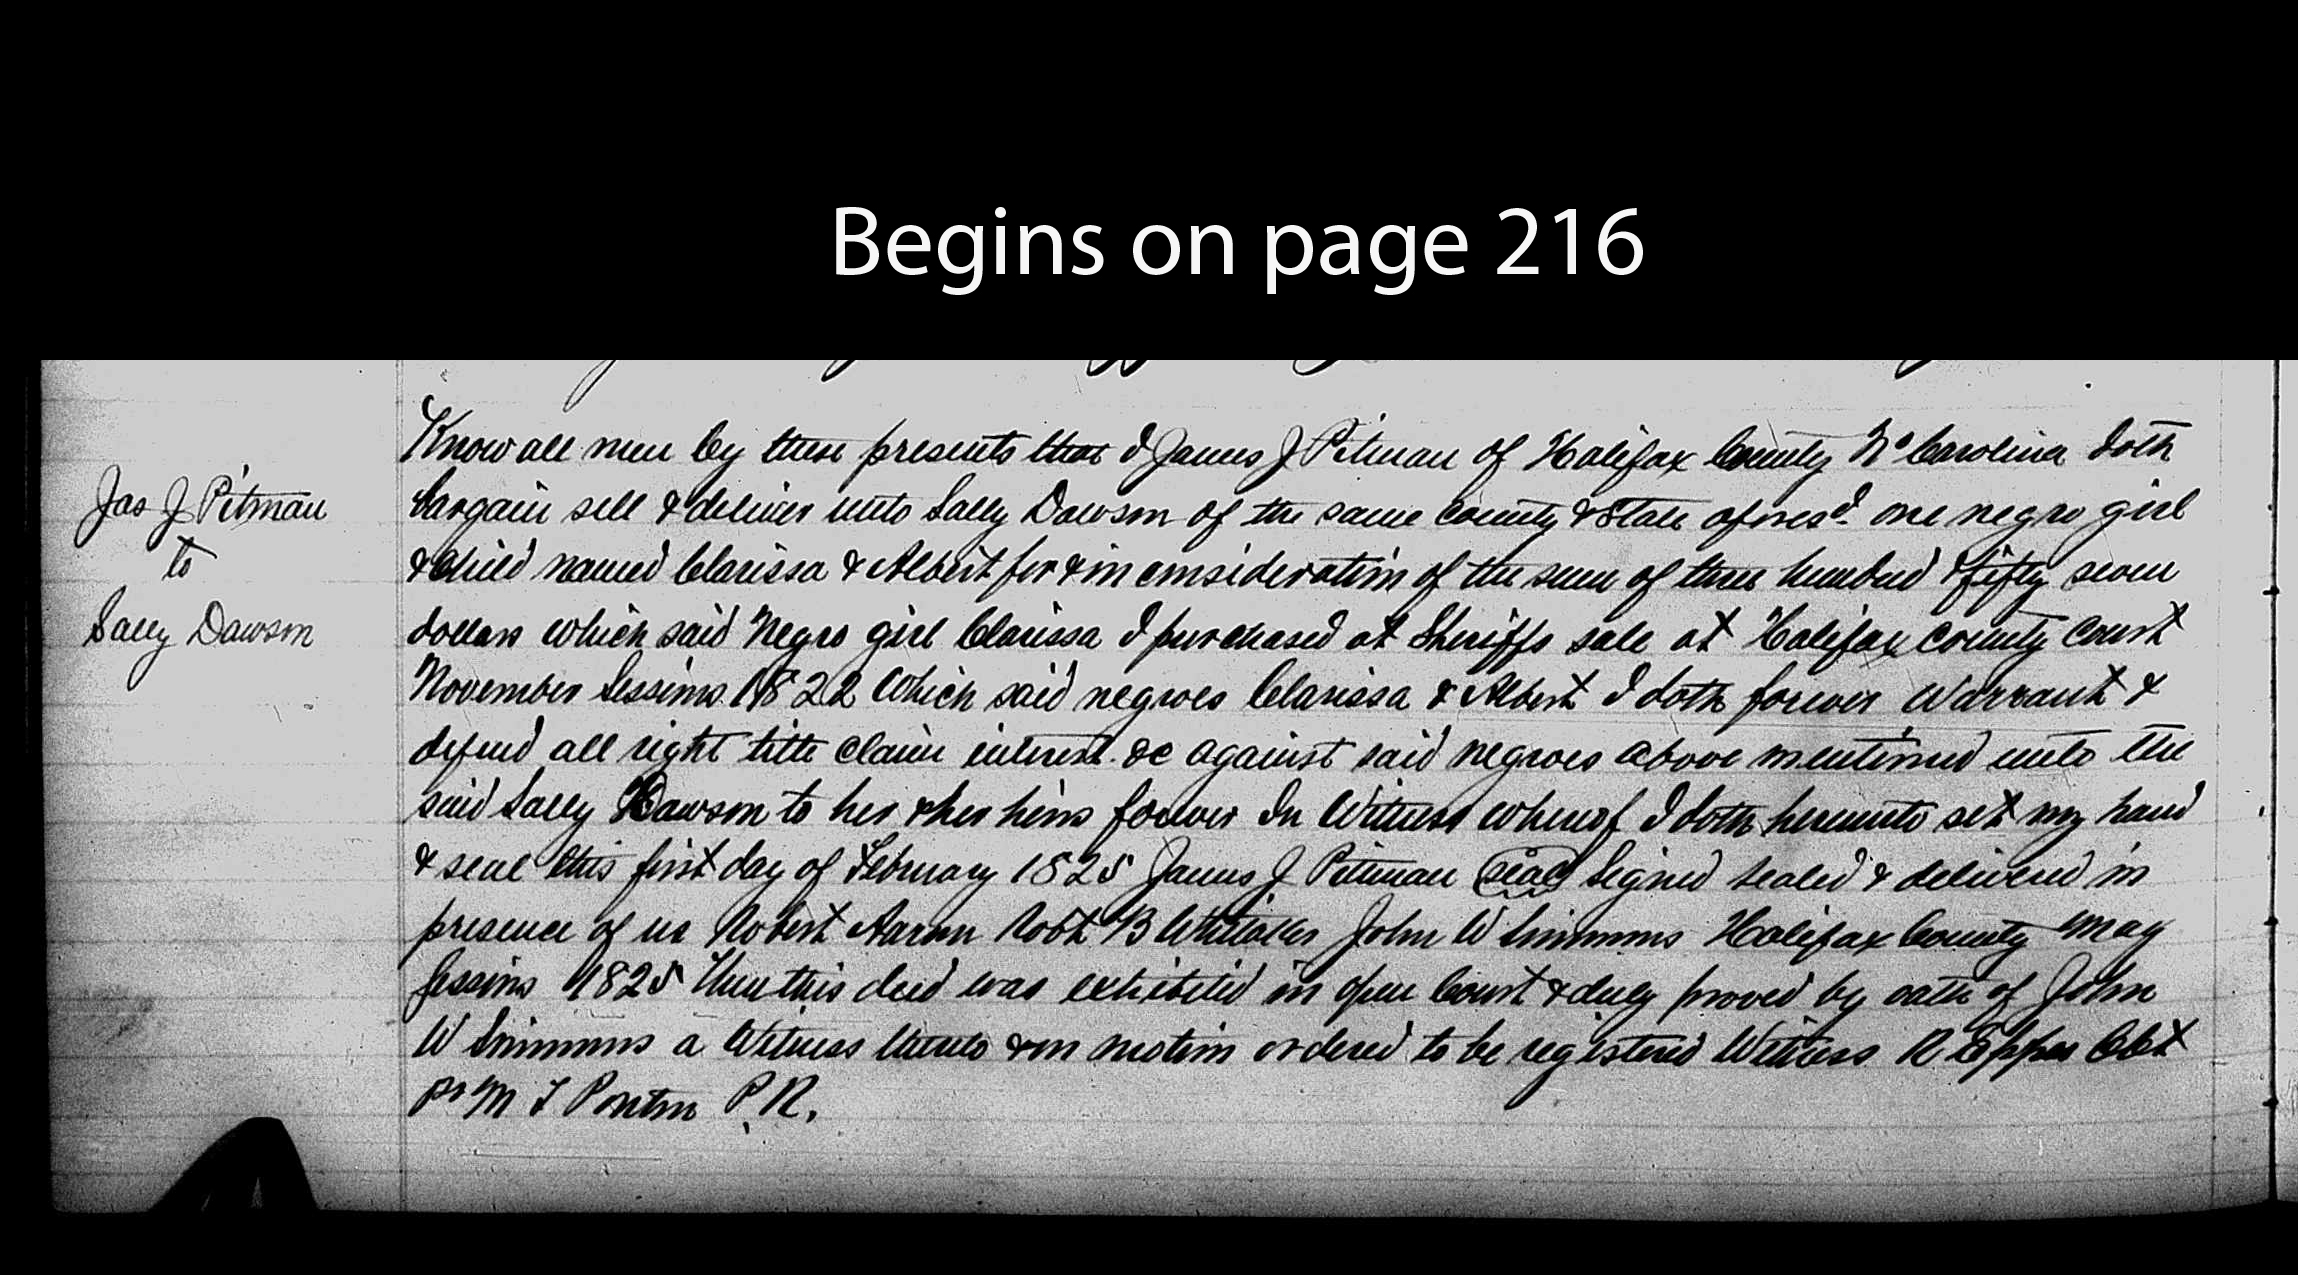 Begins on page 216
Know all men by these presents that I James J Pitman of Halifax County No Carolina doth
Jas J Pitman
to
Sally Dawson
bargain sell & deliver unto Sally Dawson of the same County & State aforesd. one negro girl
& Child named Clarissa & Albert for & in consideration of the sum of three hundred & fifty seven
dollars which said Negro girl Clarissa I purchased at Sheriffs sale at Halifax County Court
November Sessions 1822 Which said negroes Clarissa & Albert I doth forever Warrant &
defend all right title claim interest &c against said negroes above mentioned unto the
said Sally Dawson to her & her heirs forever In Witness whereof I doth hereunto set my hand
& seal this first day of February 1825 James J Pitman (seal) Signed sealed & delivered in
presence of us Robert Aaron Robt B Whitaker John W Simmons Halifax County May
Sessions 1825 Then this deed was exhibited in open Court & duly proved by oath of John
W Simmons a Witness thereto & on motion ordered to be registered Witness R Eppes Clk
pr M T Ponton P.R.